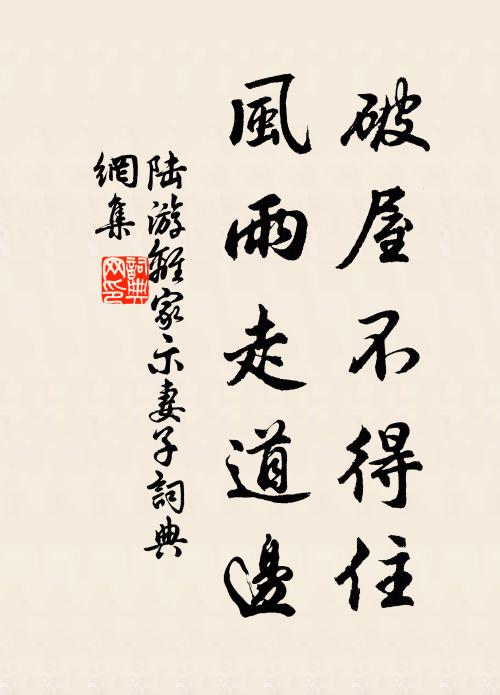 破屋不得住
風雨走道邊
陆游離家示妻子詞典
網集
詞典
网印